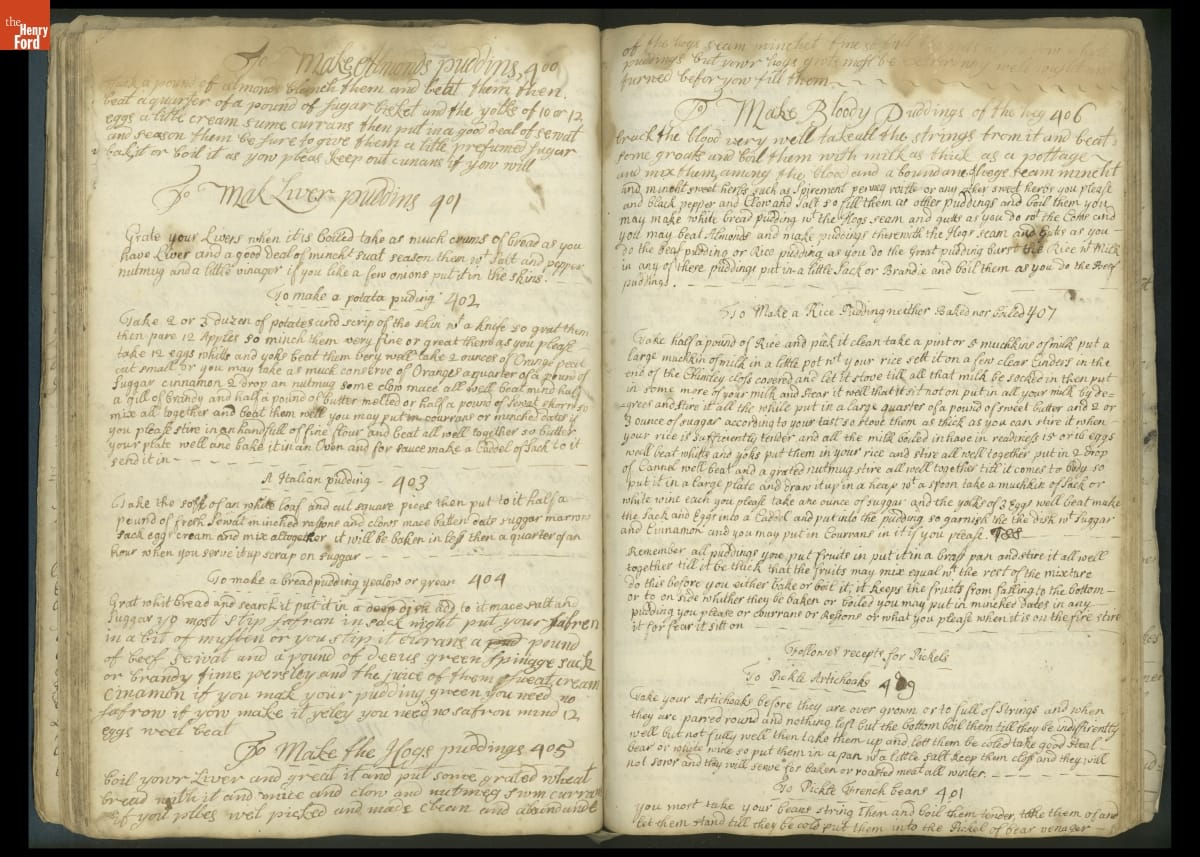 the
Henry
Ford
To Make Almonds puddins 400
take a pound of almonds blanch them and beat them then
beat a quarter of a pound of sugar bisket and the yolks of 10 or 12
eggs a litle cream sume currans then put in a good deal of sewat
and season them be sure to give them a litle prefumed sugar
bak it or boil it as yow pleas keep out curans if yow will
To Mak Liver puddins 401
Grate your Livers when it is boiled take as much crums of bread as you
have Liver and a good deal of minch't suat season them wt salt and pepper
nutmug and a little vinager if you like a few onions put it in the skins.
To make a potata puding 402
Take 2 or 3 duzen of potates and scrip of the skin wt a knife so grat them
then pare 12 Apples so minch them very fine or great them as you please
take 12 eggs whits and yoks beat them very well take 2 ounces of Oringe peat
cut small or you may take as much conserve of Oranges a quarter of a pound of
suggar cinnamon 2 drop an nutmug some clow mace all well beat mind half
a gill of brandy and half a pound of butter melted or half a pound of sweat shorn so
mix all together and beat them well you may put in courrans or minched dates if
you please stire in an handfull of fine flour and beat all well together so butter
your plate well and bake it in an Oven and for sauce make a Caddel of Sack to it
send it in
A Italian pudding - 403
Take the soft of an white loaf and cut square pices then put to it half a
pound of fresh sewat minched rasons and clons mace baten oats suggar marrow
sack egg cream and mix altogether it will be baken in less then a quarter of an
hour when you serve it up scrap on suggar
To make a bread pudding yealow or grean 404
Grat whit bread and search it put it in a deep dish add to it mace salt an
suggar yo most stip safran in sack night put your safren
in a bit of musten or you stip it currans a pound
of beef sewat and a pound of deeus green spinnge suck
or brandy time persley and the juice of them sweat cream
cinamon if you mak your pudding green you need no
safrow if yow make it yeley you need no safron mind 12
eggs weel beat
To Make the Hogs puddings 405
boil yowr Liver and great it and put some grated wheat
bread with it and mice and clow and nutmeg swm curran
if you ples wel picked and made clean and abundance
of the hogs seam minchet fine so fill the guts as yow do other
puddings but yowr hogs guts most be very well wught an
turned befor yow fill them
To Make Bloody Puddings of the hog 406
bruck the blood very well take all the strings from it and beat
some groats and boil them with milk as thick as a pottage
and mix them among the blood and a boundane of hogs seam mincht
and minch't sweet herbs such as spirement or any other sweet herb you please
and black pepper and Clow and salt so fill them as other puddings and boil them you
may make white bread pudding wt the Hogs seam and guts as you do wt the Cows and
you may beat Almonds and make puddings therewith the Hogs seam and guts as you
do the beaf pudding or Rice pudding as you do the Groat pudding burst the Rice wt Milk
in any of these puddings put in a little Sack or Brandie and boil them as you do the Beef
puddings.
To Make a Rice Pudding neither Baked nor Boiled 407
Take half a pound of Rice and pick it clean take a pint or 5 muchkins of milk put a
large muchkin of milk in a little pot wt your rice sett it on a few clear Cinders in the
end of the Chimley closs covered and let it stove till all that milk be socked in then put
in some more of your milk and stear it well that it sit not on put in all your milk by de=
=grees and stire it all the while put in a large quarter of a pound of sweet butter and 2 or
3 ounce of suggar according to your tast so stove them as thick as you can stire it when
your rice is sufficiently tender and all the milk boiled in have in readiness 15 or 16 eggs
well beat whits and yoks put them in your rice and stire all well together put in 2 drop
of Cannel well beat and a grated nutmug stire all well together till it comes to body so
put it in a large plate and draw it up in a heap wt a spoon take a muchkin of Sack or
white wine each you please take an ounce of suggar and the yalks of 3 Eggs well beat make
the Sack and Eggs into a Caddel and put into the pudding so garnish the the dish wt Suggar
and Cinnamon and you may put in Courrans in it if you please.
Remember all puddings you put fruits in put it in a brass pan and stire it all well
together till it be thick that the fruits may mix equal wt the rest of the mixture
do this before you either bake or boil it, it keeps the fruits from falling to the bottom
or to on side whither they be baken or boiled you may put in minched Dates in any
pudding you please or courrans or Resons or what you please when it is on the fire stire
it for fear it sitt on
Followes recepts for Pickels
To Pickle Artichoaks 409
Take your Artichoaks before they are over grown or to full of strings and when
they are parred round and nothing left but the bottom boil them till they be indifferently
well but not fully well then take them up and let them be cold take good steal
bear or white wine so put them in a pan wt a little salt keep them closs and they will
not sowr and they will serve for baken or roasted meat all winter.
To Pickle French beans 401
You most take your beans string them and boil them tender, take them of and
let them stand till they be cold put them into the Pickel of bear venager